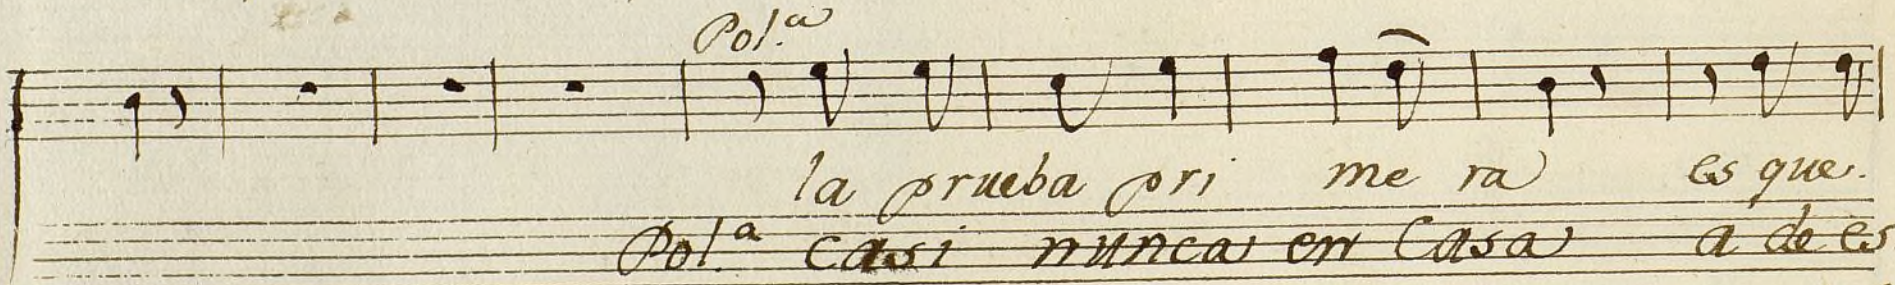 Pol.ª
la prueba pri me ra es que.
Pol.ª casi nunca en Casa a de es